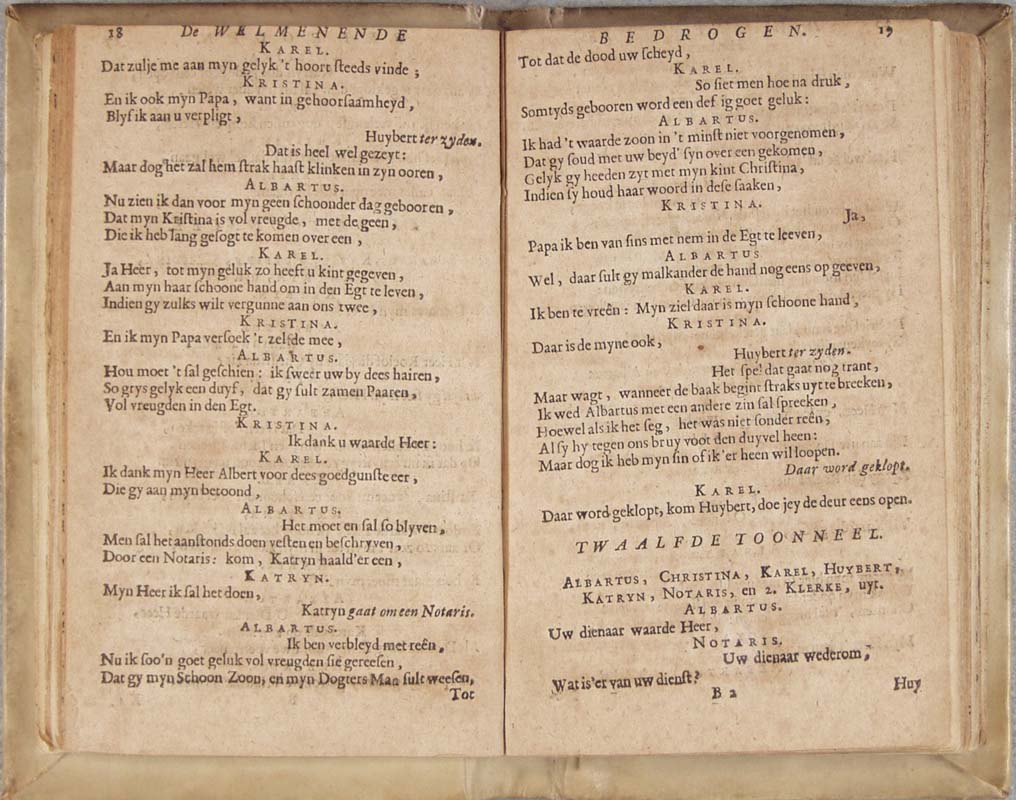 18 De WELMENENDE
KAREL.
Dat zulje me aan myn gelyk 't hoort steeds vinde;
KRISTINA.
En ik ook myn Papa, want in gehoorsaamheyd,
Blyf ik aan u verpligt,
Huybert ter zyden.
Dat is heel wel gezeyt:
Maar dog het zal hem strak haast klinken in zyn ooren,
ALBARTUS.
Nu zien ik dan voor myn geen schoonder dag gebooren,
Dat myn Kristina is vol vreugde, met de geen,
Die ik heb lang gesogt te komen over een,
KAREL.
Ja Heer, tot myn geluk zo heeft u kint gegeven,
Aan myn haar schoone hand om in den Egt te leven,
Indien gy zulks wilt vergunne aan ons twee,
KRISTINA.
En ik myn Papa versoek 't zelfde mee,
ALBARTUS.
Hou moet 't sal geschien: ik sweer uw by dees hairen,
So grys gelyk een duyf, dat gy sult zamen Paaren,
Vol vreugden in den Egt.
KRISTINA.
Ik dank u waarde Heer:
KAREL.
Ik dank myn Heer Albert voor dees goedgunste eer,
Die gy aan myn betoond,
ALBARTUS.
Het moet en sal so blyven,
Men sal het aanstonds doen vesten en beschryven,
Door een Notaris: kom, Katryn haald'er een,
KATRYN.
Myn Heer ik sal het doen,
Katryn gaat om een Notaris.
ALBARTUS.
Ik ben verbleyd met reên,
Nu ik soo'n goet geluk vol vreugden sie gereesen,
Dat gy myn Schoon Zoon, en myn Dogters Man sult weesen,
Tot
BEDROGEN. 19
Tot dat de dood uw scheyd,
KAREL.
So siet men hoe na druk,
Somtyds gebooren word een deftig goet geluk:
ALBARTUS.
Ik had 't waarde zoon in 't minst niet voorgenomen,
Dat gy soud met uw beyd' syn over een gekomen,
Gelyk gy heeden zyt met myn kint Christina,
Indien sy houd haar woord in dese saaken,
KRISTINA.
Ja,
Papa ik ben van sins met nem in de Egt te leeven,
ALBARTUS
Wel, daar sult gy malkander de hand nog eens op geeven,
KAREL.
Ik ben te vreên: Myn ziel daar is myn schoone hand,
KRISTINA.
Daar is de myne ook,
Huybert ter zyden.
Het spel dat gaat nog trant,
Maar wagt, wanneer de baak begint straks uyt te breeken,
Ik wed Albartus met een andere zin sal spreeken,
Hoewel als ik het seg, het was niet sonder reên,
Al sy hy tegen ons bruy voot den duyvel heen:
Maar dog ik heb myn sin of ik 'er heen wil loopen.
Daar word geklopt.
KAREL.
Daar word geklopt, kom Huybert, doe jey de deur eens open.
TWAALFDE TOONNEEL.
ALBARTUS, CHRISTINA, KAREL, HUYBERT,
KATRYN, NOTARIS, en 2. KLERKE, uyt.
ALBARTUS.
Uw dienaar waarde Heer,
NOTARIS.
Uw dienaar wederom,
Wat is'er van uw dienst?
B 2 Huy